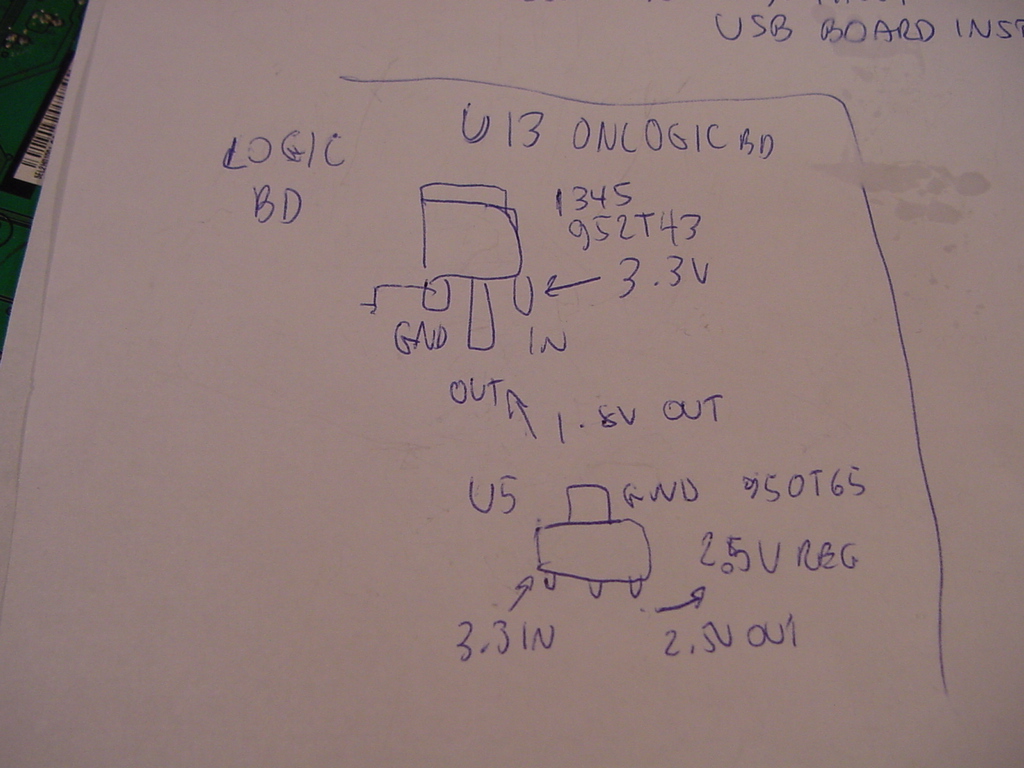 USB BOARD INST
LOGIC
BD
U13 ONLOGIC BD
1345
952T43
3.3V
GND
IN
OUT
1.8V OUT
U5
GND
950T65
2.5V REG
3.3 IN
2.5V OUT